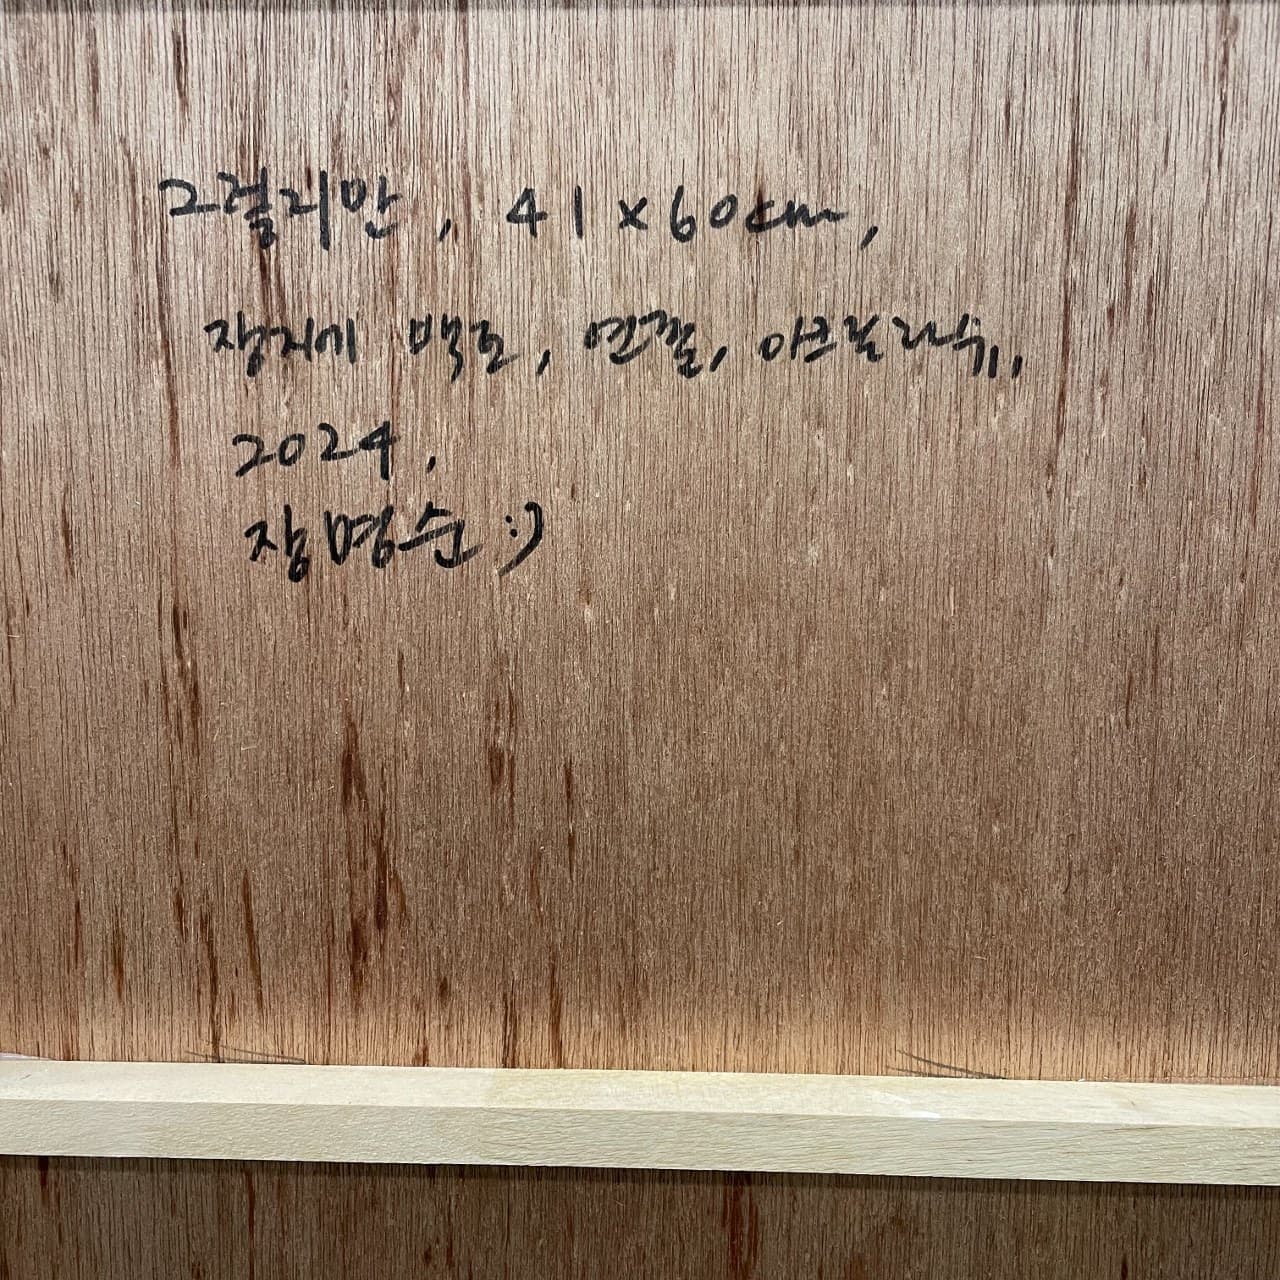 그럴리만, 41×60cm,
장지에 백토, 연필, 아크릴라슈,
2024,
장명순 :)